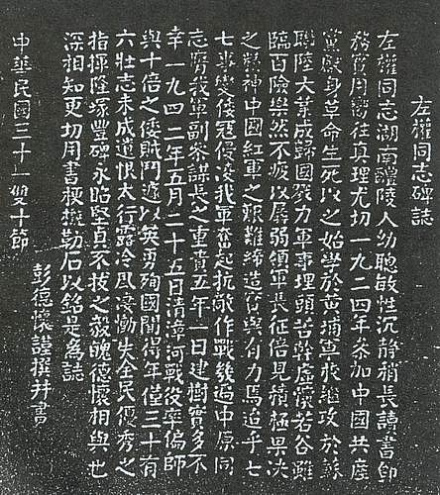 左權同志碑誌
左權同志湖南醴陵人幼聰敏性沉靜稍長讀書即
務實用嚮往真理尤切一九二四年參加中國共產
黨獻身革命生死以之始學於黃埔軍校繼攻於蘇
聯陸大業成歸國戮力軍事埋頭苦幹虛懷若谷雖
臨百險樂然不疲以孱弱領軍長征倍見積極果決
之精神中國紅軍之艱難締造實與有力焉迨乎七
七事變倭寇侵凌我軍奮起抗敵作戰幾遍中原同
志膺我軍副參謀長之重責五年一日建樹實多不
幸一九四二年五月二十五日清漳河戰役率偏師
與十倍之倭賊鬥遽以英勇殉國聞得年僅三十有
六壯志未成遺恨太行露冷風淒慟失全民優秀之
指揮隆塚豐碑永昭堅貞不拔之毅魄德懷相與也
深相知更切用書梗概勒石以銘是為誌
彭德懷謹撰并書
中華民國三十一雙十節